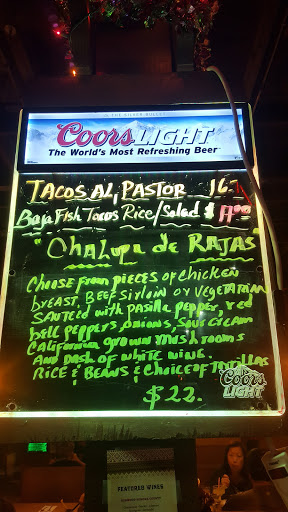 THE SILVER BULLET
Coors LIGHT
The World's Most Refreshing Beer
TACOS AL PASTOR 16.
Baja Fish Tacos Rice/Salad $
"Chalupa de RAJAS"
Choose from pieces of chicken
breast, Beef Sirloin or Vegetarian
sauteed with pasilla pepper, red
bell peppers, onions, sour cream
California grown mushrooms
And dash of white wine.
Rice & Beans & choice of Tortillas
$22.
Coors
LIGHT
FEATURED WINES